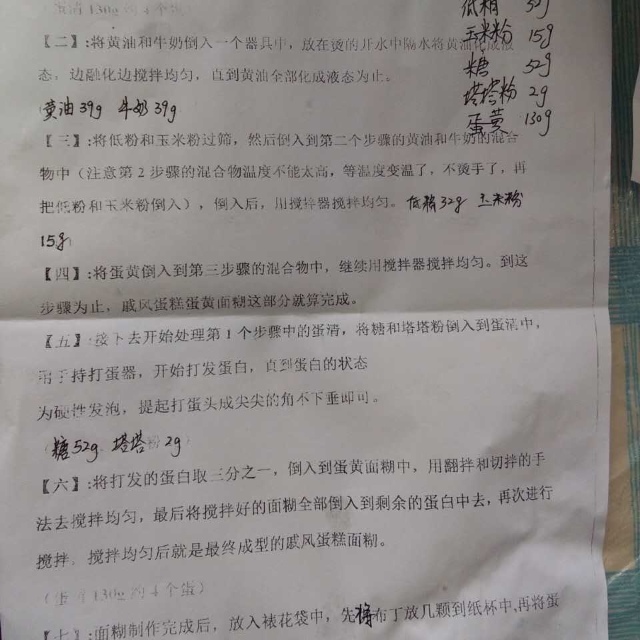 （蛋清130g约4个蛋）
低粉 32g
玉米粉 15g
糖 52g
塔塔粉 2g
蛋黄 130g
【二】:将黄油和牛奶倒入一个器具中，放在烫的开水中隔水将黄油化成液
态，边融化边搅拌均匀，直到黄油全部化成液态为止。
黄油39g 牛奶39g
【三】:将低粉和玉米粉过筛，然后倒入到第二个步骤的黄油和牛奶的混合
物中（注意第2步骤的混合物温度不能太高，等温度变温了，不烫手了，再
把低粉和玉米粉倒入），倒入后，用搅拌器搅拌均匀。低粉32g 玉米粉
15g
【四】:将蛋黄倒入到第三步骤的混合物中，继续用搅拌器搅拌均匀。到这
步骤为止，戚风蛋糕蛋黄面糊这部分就算完成。
【五】:接下去开始处理第1个步骤中的蛋清，将糖和塔塔粉倒入到蛋清中，
用手持打蛋器，开始打发蛋白，直到蛋白的状态
为硬性发泡，提起打蛋头成尖尖的角不下垂即可。
（糖52g 塔塔粉2g
【六】:将打发的蛋白取三分之一，倒入到蛋黄面糊中，用翻拌和切拌的手
法去搅拌均匀，最后将搅拌好的面糊全部倒入到剩余的蛋白中去，再次进行
搅拌。搅拌均匀后就是最终成型的戚风蛋糕面糊。
（蛋清130g约4个蛋）
【七】:面糊制作完成后，放入裱花袋中，先将布丁放几颗到纸杯中,再将蛋